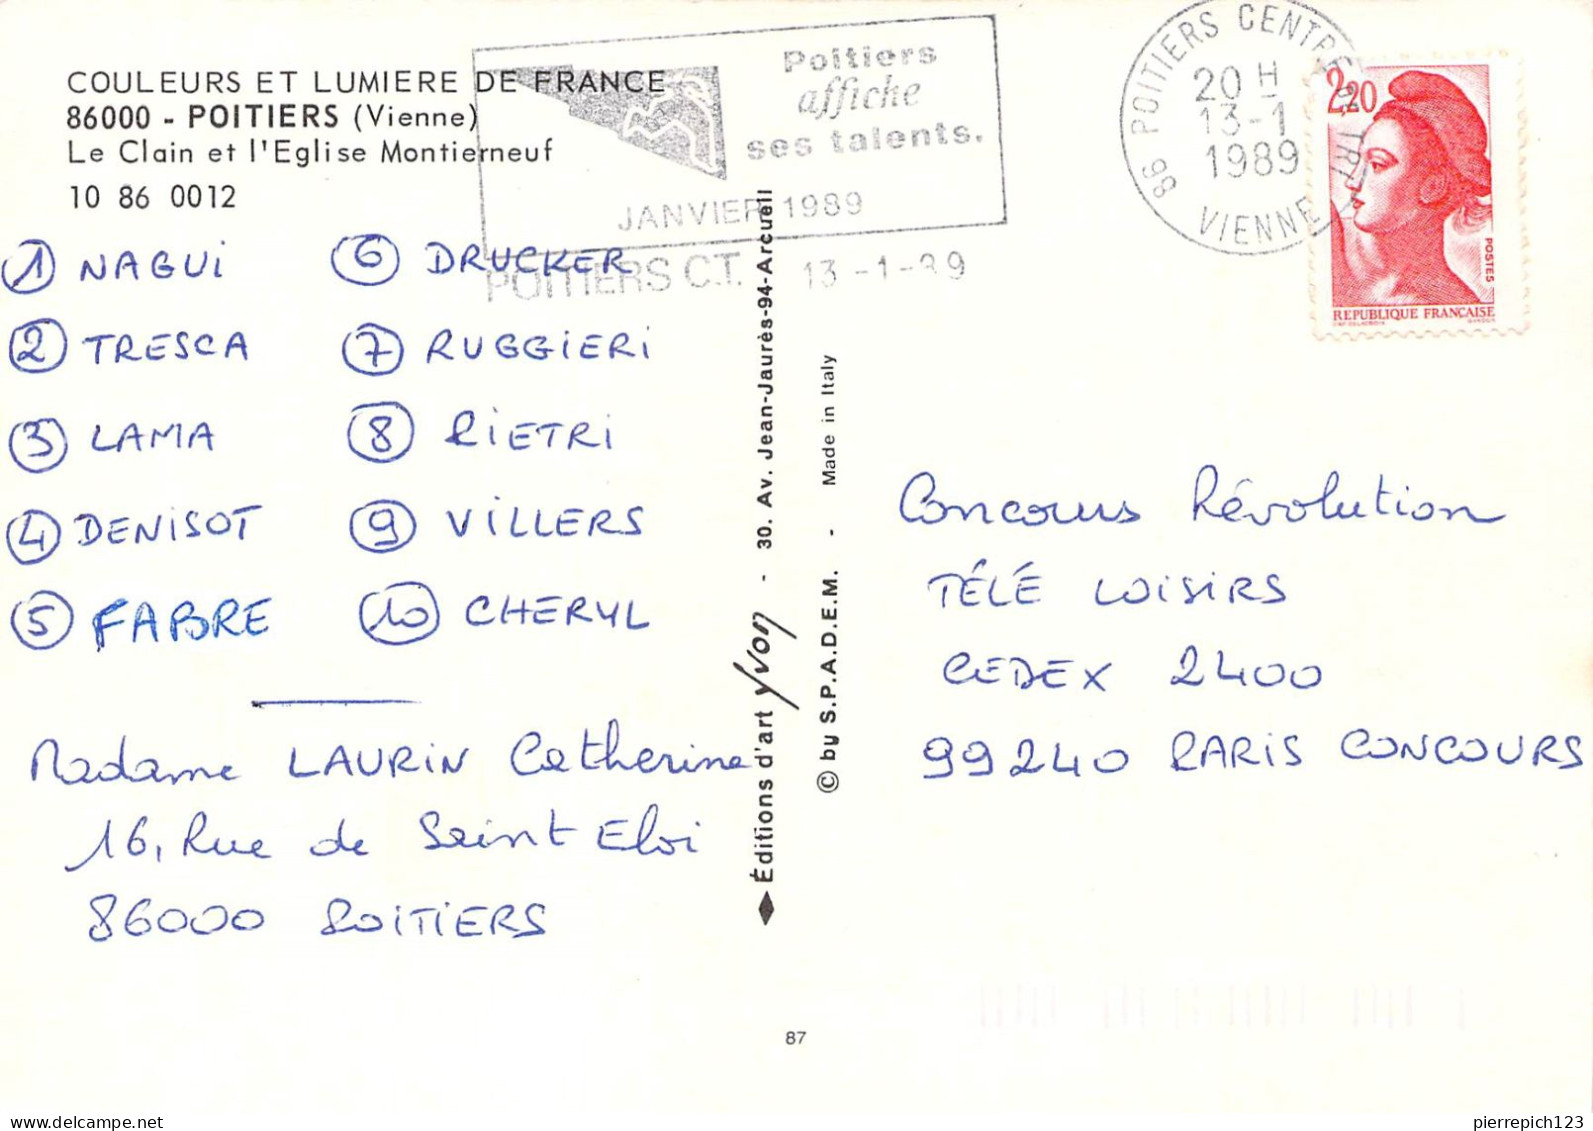 COULEURS ET LUMIERE DE FRANCE
86000 - POITIERS (Vienne)
Le Clain et l'Eglise Montierneuf
10 86 0012
Poitiers
affiche
ses talents.
JANVIER 1989
POITIERS C.T. 13-1-89
86 POITIERS CENTRE TRI
20 H
13-1
1989
VIENNE
2,20
POSTES
REPUBLIQUE FRANCAISE
① NAGUI
② TRESCA
③ LAMA
④ DENISOT
⑤ FABRE
⑥ DRUCKER
⑦ RUGGIERI
⑧ PIETRI
⑨ VILLERS
⑩ CHERYL
Madame LAURIN Catherine
16, Rue de Saint Eloi
86000 POITIERS
Éditions d'art Yvon - 30. Av. Jean-Jaurès-94-Arcueil
© by S.P.A.D.E.M. - Made in Italy
Concours Révolution
TÉLÉ LOISIRS
CEDEX 2400
99240 PARIS CONCOURS
87
pierrepich123